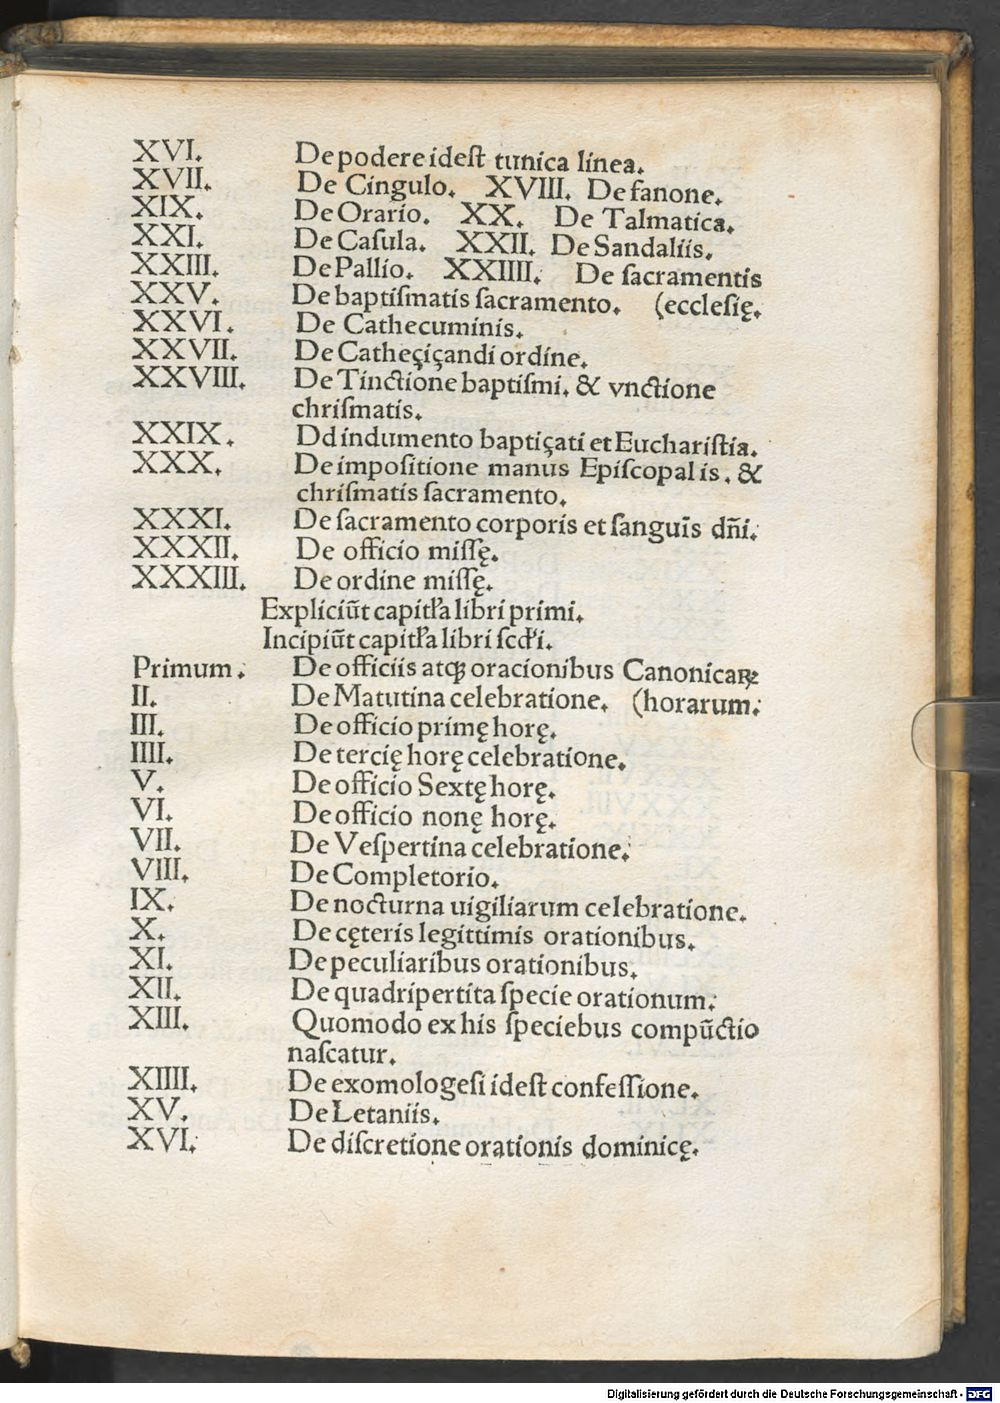 XVI. De podere ideſt tunica linea.
XVII. De Cingulo. XVIII. De fanone.
XIX. De Orario. XX. De Talmatica.
XXI. De Caſula. XXII. De Sandaliis.
XXIII. De Pallio. XXIIII. De ſacramentis
XXV. De baptiſmatis ſacramento. (eccleſię.
XXVI. De Cathecuminis.
XXVII. De Catheçiçandi ordine.
XXVIII. De Tinctione baptiſmi. & vnctione
chriſmatis.
XXIX. Dd indumento baptiçati et Euchariſtia.
XXX. De impoſitione manus Epiſcopalis. &
chriſmatis ſacramento.
XXXI. De ſacramento corporis et ſanguīs dn̄i.
XXXII. De officio miſſę.
XXXIII. De ordine miſſę.
Expliciūt capitl̓a libri primi.
Incipiūt capitl̓a libri ſcd̓i.
Primum. De officiis atqꝫ oracionibus Canonicaꝝ
II. De Matutina celebratione. (horarum.
III. De officio primę horę.
IIII. De tercię horę celebratione.
V. De officio Sextę horę.
VI. De officio nonę horę.
VII. De Veſpertina celebratione.
VIII. De Completorio.
IX. De nocturna uigiliarum celebratione.
X. De cęteris legittimis orationibus.
XI. De peculiaribus orationibus.
XII. De quadripertita ſpecie orationum.
XIII. Quomodo ex his ſpeciebus compūctio
naſcatur.
XIIII. De exomologeſi ideſt confeſſione.
XV. De Letaniis.
XVI. De diſcretione orationis dominicę.
Digitalisierung gefördert durch die Deutsche Forschungsgemeinschaft - DFG